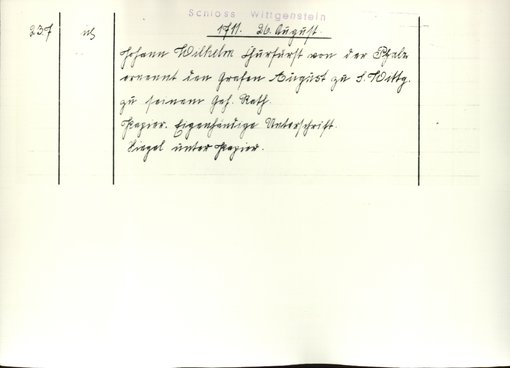 Schloss Wittgenstein
1711. 26. August.
237
Johann Wilhelm Churfürst von der Pfalz
ernennt den Grafen August zu S. Wittg.
zu seinem Geh. Rath.
Papier. Eigenhändige Unterschrift.
Siegel unter Papier.